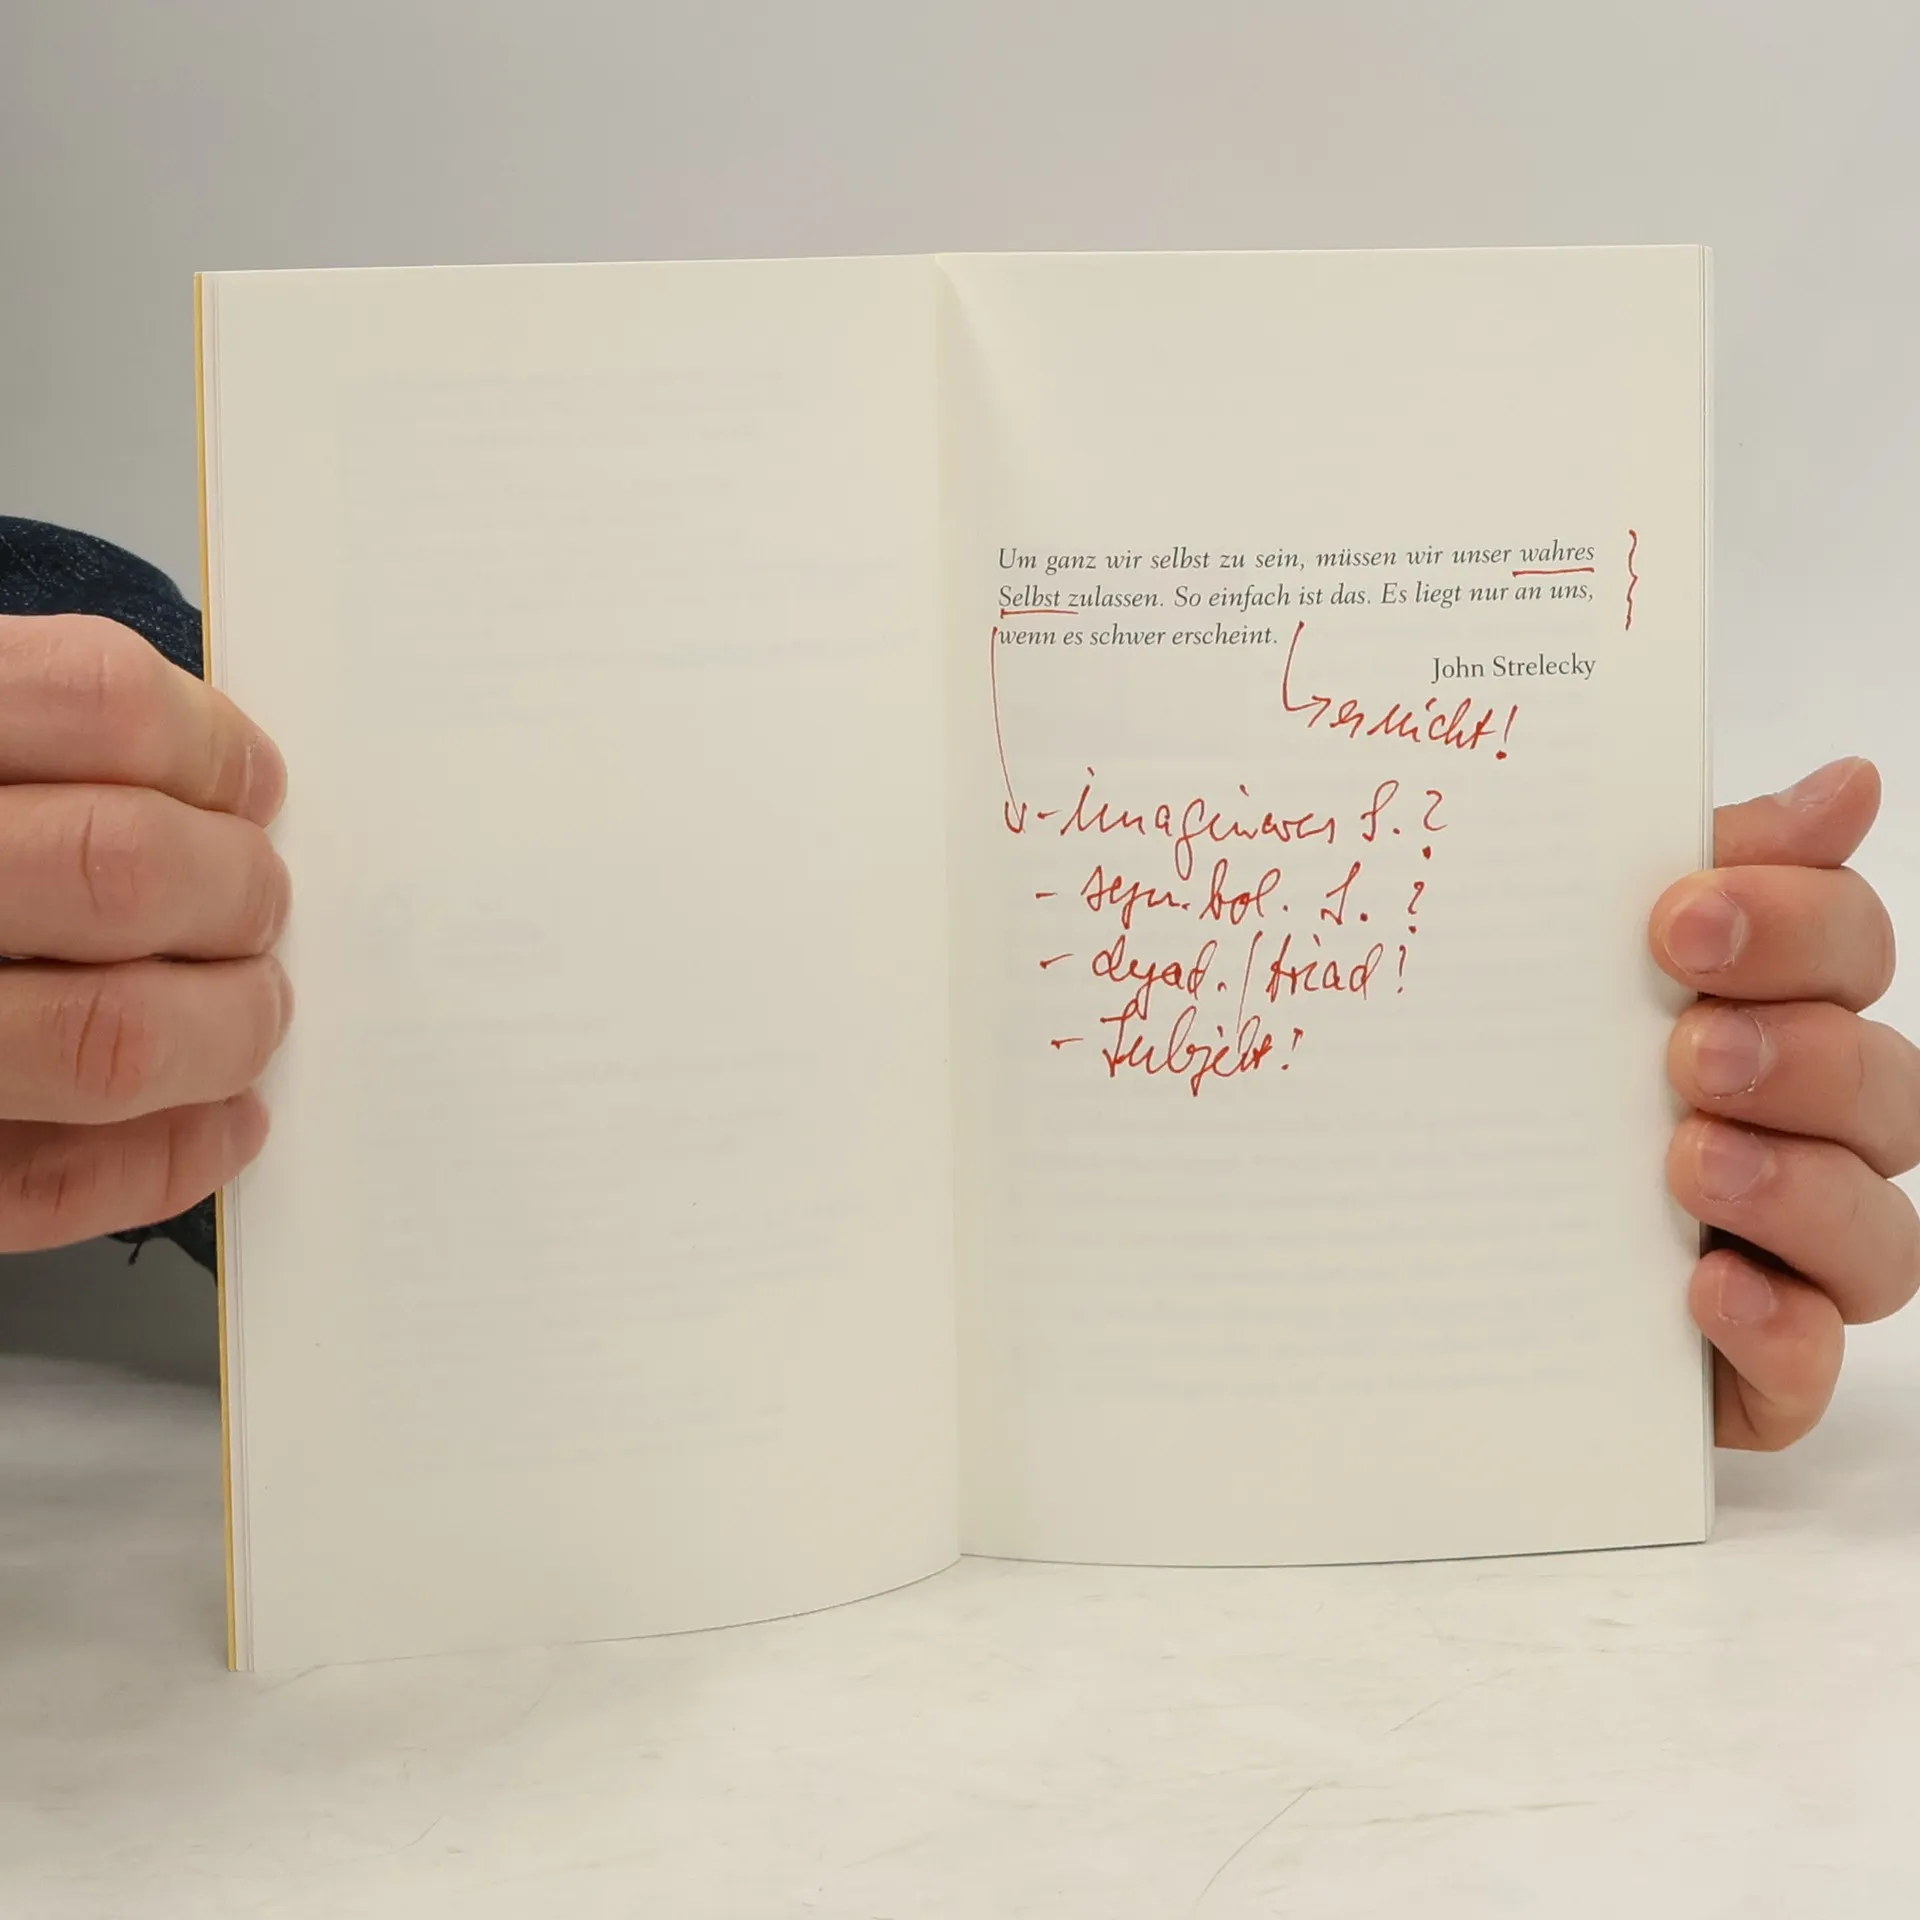 Um ganz wir selbst zu sein, müssen wir unser wahres
Selbst zulassen. So einfach ist das. Es liegt nur an uns,
wenn es schwer erscheint.
John Strelecky
nicht!
- imaginäres S. ?
- symbol. S. ?
- dyad. / triad?
- Subjekt?